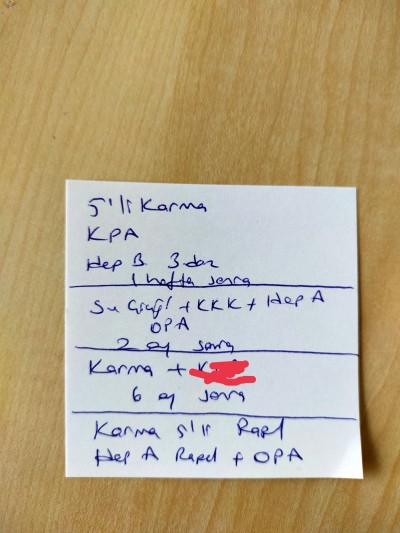 5'li Karma
KPA
Hep B 3 doz
1 hafta sonra
Su Çiçeği + KKK + Hep A
OPA
2 ay sonra
Karma +
6 ay sonra
Karma 5'li Rapel
Hep A Rapel + OPA